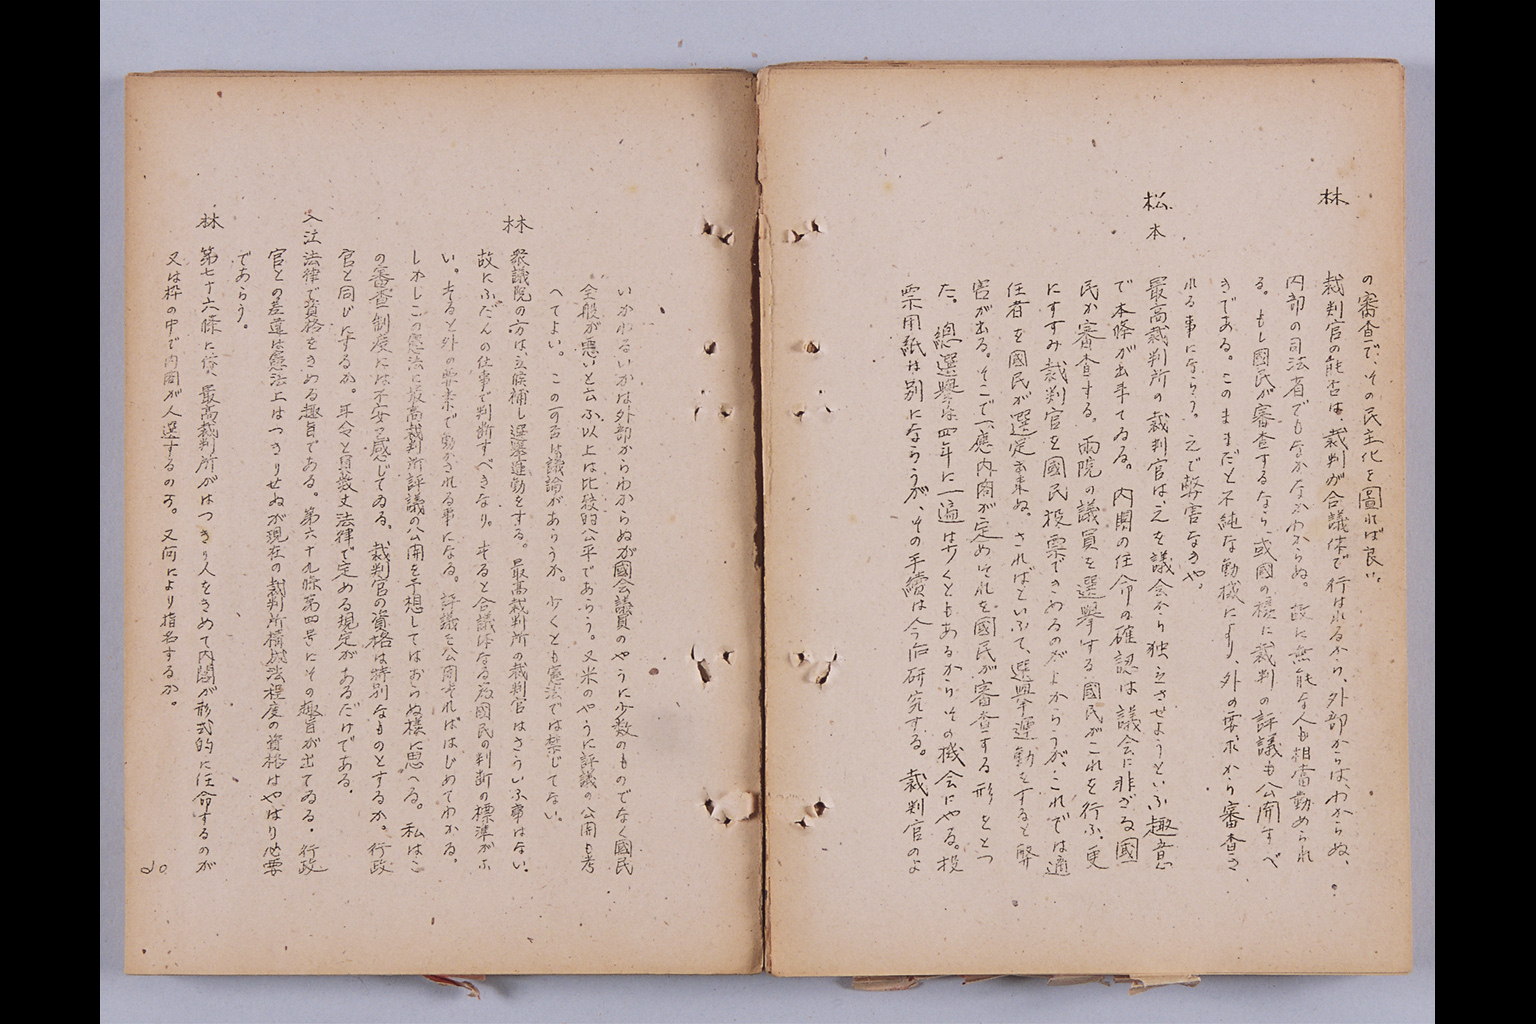 の審査で、その民主化を圖れば良い。
林
裁判官の能否は、裁判が合議体で行はれるから、外部からは、わからぬ、
内部の司法者でもなかなかわからぬ。故に無能な人も相當勤められ
る。もし國民が審査するなら、或國の様に裁判の評議も公開すべ
きである。このままだと不純な動機により、外の要求から審査さ
れる事にならう。之で弊害なきや。
松本
最高裁判所の裁判官は、之を議会から独立させようといふ趣意
で本條が出来てゐる。内閣の任命の確認は議会に非ざる國
民が審査する。両院の議員を選擧する國民がこれを行ふ、更
にすすみ裁判官を國民投票できめるのがよからうが、これでは適
任者を國民が選定出来ぬ。さればといふて、選擧運動をすると弊
害が出る。そこで一應内閣が定めそれを國民が審査する形をとつ
た。總選擧は四年に一遍は少くともあるからその機会にやる。投
票用紙は別にならうが、その手續は今后研究する。裁判官のよ
いかわるいかは外部からわからぬが國会議員のやうに少数のものでなく國民
全般が悪いと云ふ以上は比較的公平であらう。又米のやうに評議の公開も考
へてよい。この可否は議論があらうか。少くとも憲法では禁じてない。
林
衆議院の方は、立候補し選擧運動をする。最高裁判所の裁判官はさういふ事はない、
故にふだんの仕事で判断すべきなり。すると合議体なる為國民の判断の標準がな
い。すると外の要素で動かされる事になる。評議を公開すればはじめてわかる。
しかしこの憲法に最高裁判所評議の公開を予想してはおらぬ様に思へる。私はこ
の審査制度には不安を感じてゐる。裁判官の資格は特別なものとするか。行政
官と同じにするか。年令と員数丈法律で定める規定があるだけである。
入江
法律で資格をきめる趣旨である。第六十九條第四号にその趣旨が出てゐる。行政
官との差違は憲法上はつきりせぬが現在の裁判所構成法程度の資格はやはり必要
であらう。
林
第七十六條に依、最高裁判所がはつきり人をきめて内閣が形式的に任命するのか
又は枠の中で内閣が人選するのか。又何により指名するか。